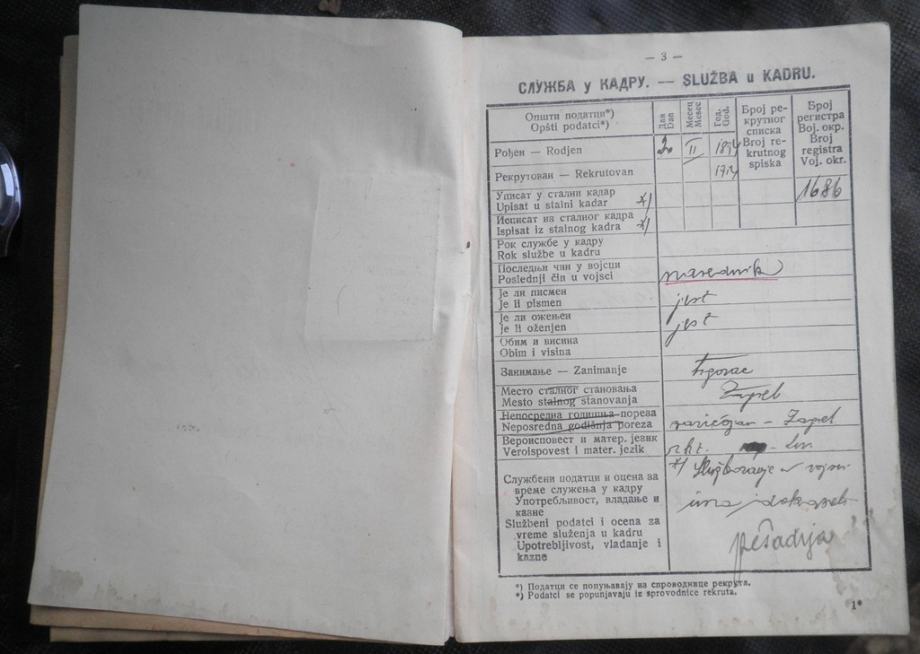 — 3 —
СЛУЖБА у КАДРУ. — SLUŽBA u KADRU.
Општи податци*)
Opšti podatci*)
Дан
Dan
Месец
Mesec
Год.
God.
Број ре-
крутног
списка
Broj re-
krutnog
spiska
Број
регистра
Вој. окр.
Broj
registra
Voj. okr.
Рођен — Rodjen
2 II
Рекрутован — Rekrutovan
Уписат у стални кадар
Upisat u stalni kadar *)
1686
Исписат из сталног кадра
Ispisat iz stalnog kadra *)
Рок службе у кадру
Rok službe u kadru
Последњи чин у војсци
Poslednji čin u vojsci
narednik
Је ли писмен
Je li pismen
jest
Је ли ожењен
Je li oženjen
jest
Обим и висина
Obim i visina
Занимање — Zanimanje
trgovac
Место сталног становања
Mesto stalnog stanovanja
Непосредна годишња пореза
Neposredna godišnja poreza
Вероисповест и матер. језик
Veroispovest i mater. jezik
rkt.
Службени податци и оцена за
време служења у кадру
Употребљивост, владање и
казне
Službeni podatci i ocena za
vreme služenja u kadru
Upotrebljivost, vladanje i
kazne
*)
ima
pešadija
*) Податци се попуњавају из спроводнице рекрута.
*) Podatci se popunjavaju iz sprovodnice rekruta.
1*